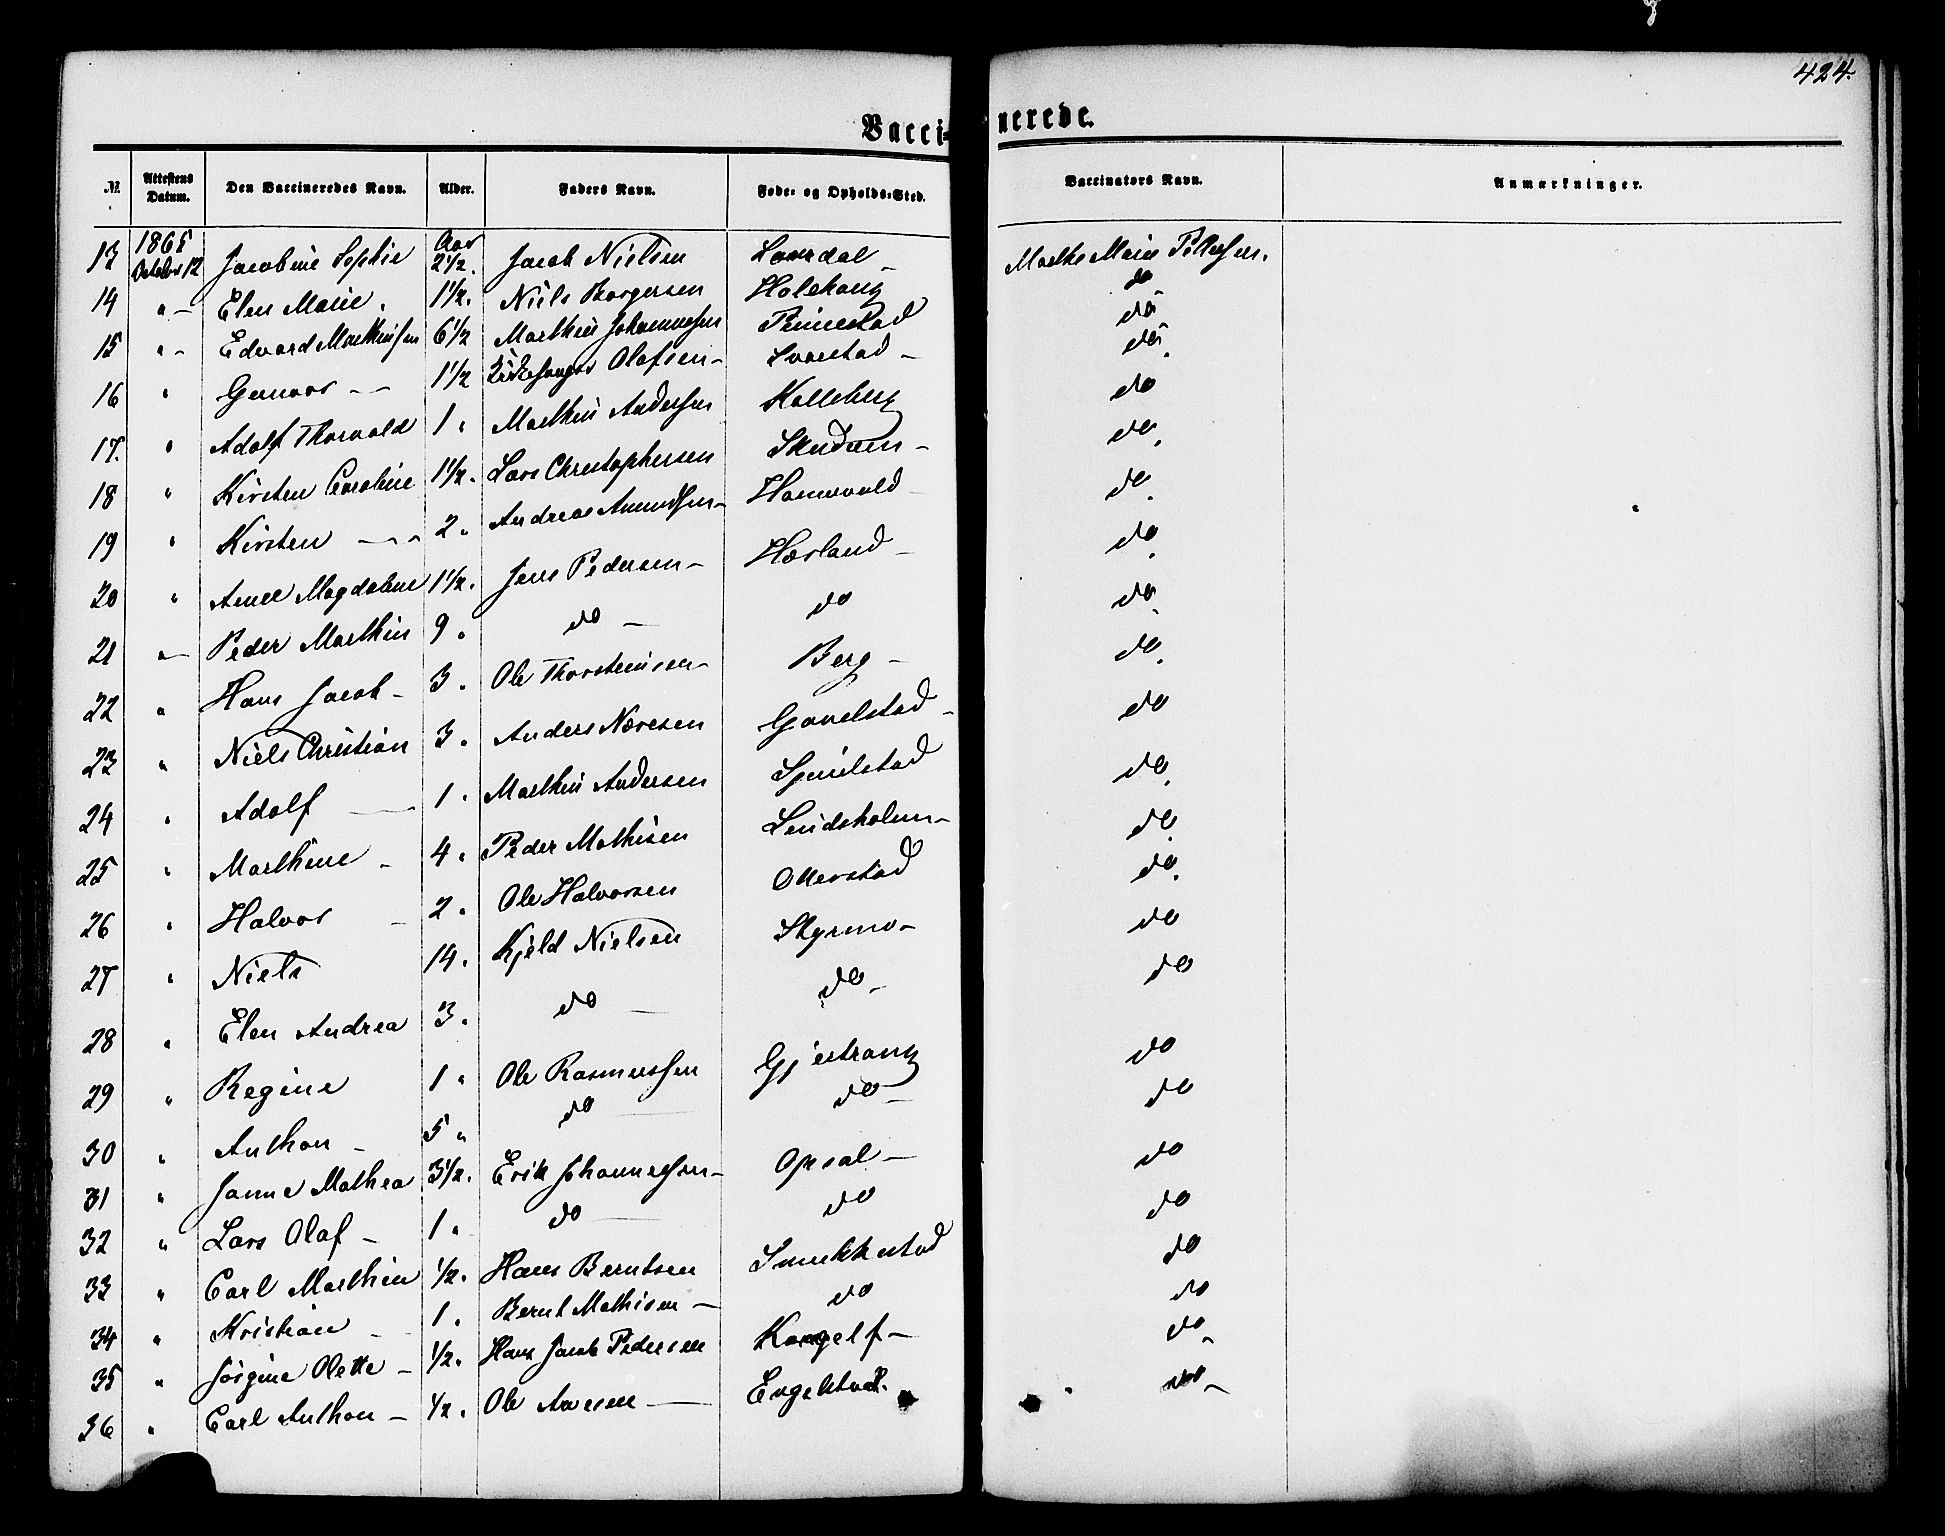 424.
Vaccinerede.
№ Attestens Datum. Den Vaccineredes Navn. Alder. Faders Navn. Føde- og Opholds-Sted. Vaccinators Navn. Anmærkninger.
13 1865 October 12 Jacobine Sophie Aar 2 1/2. Jacob Nielsen Laurdal Marthe Marie Pettersen.
14 " Elen Marie. 1 1/2. Niels Borgersen Holehaug do
15 " Edvard Marthinsen 6 1/2 Marthin Johannessen Pinnestad do
16 " Gunvor 1 1/2 Kirkesanger Olafsen Svarstad do
17. " Adolf Thorvald 1 " Marthin Anderssen Kolleberg do
18 " Kirsten Caroline 1 1/2. Lars Christophersen do
19 " Kirsten 2. Andreas Amundsen Hannevold do
20 " Anne Magdalene 1 1/2. Jens Pedersen Hæsland do
21 " Peder Marthin 9 " do do do
22 " Hans Jacob 3. Ole Thorsteinsen Berg do
23 " Niels Christian 3. Anders Næresen Gavelstad do
24 " Adolf 1. Marthin Andersen do
25 " Marthine 4. Peder Mathisen Lindsholm do
26 " Halvor 2. Ole Halvorsen Ollerstad do
27 " Niels 14. Kjeld Nielsen Styrmo do
28 " Elen Andrea 3. do do do
29 " Regine 1 " Ole Rasmussen Gjestrang do
30 " Anthon 5 " do do do
31 " Janne Mathea 3 1/2. Erik Johannessen Opsal do
32 " Lars Olaf 1 " do do do
33 " Carl Marthin 1/2. Hans Berntsen Snukkestad do
34 " Kristian 1. Bernt Mathisen do do
35 " Jørgine Olette 1/2. Hans Jacob Pedersen Kongelf do
36 " Carl Anthon 1/2. Ole Engelstad. do